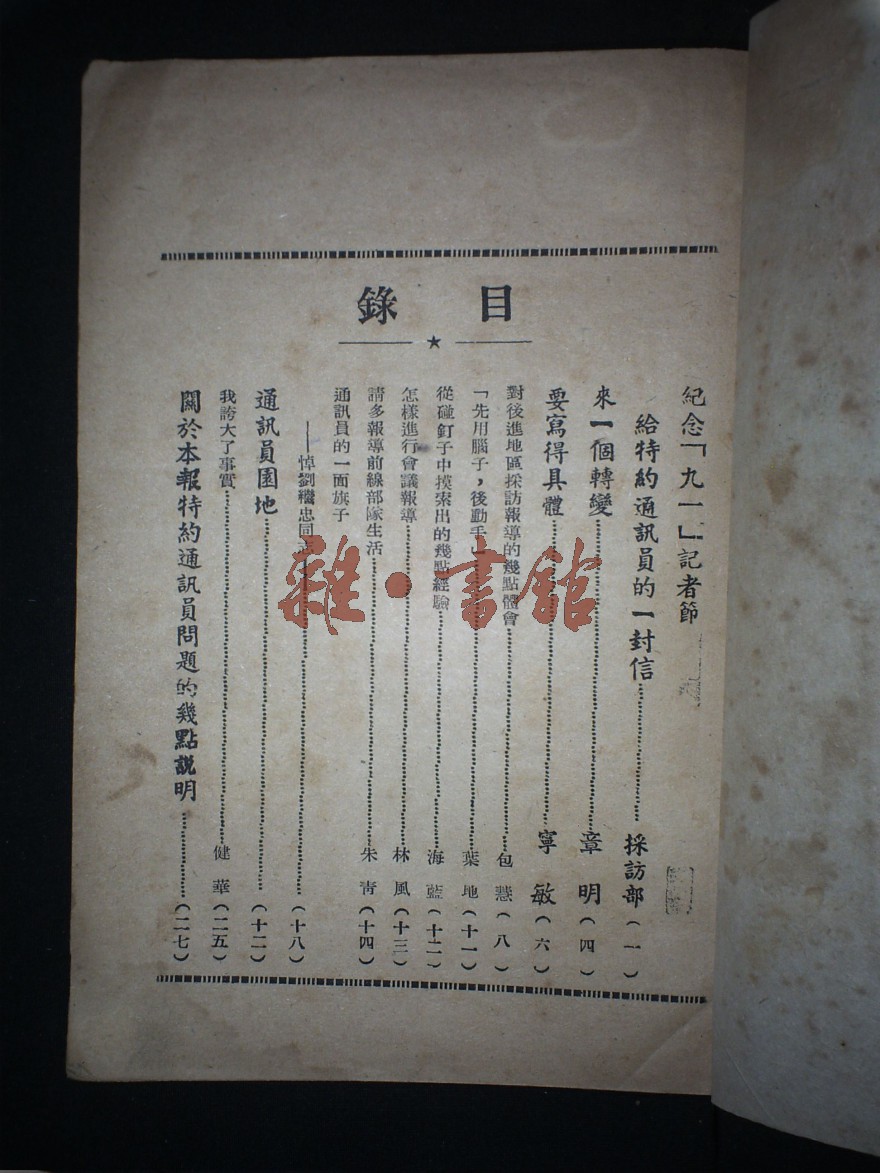 目錄
紀念「九一」記者節
給特約通訊員的一封信 採訪部（一）
來一個轉變 章明（四）
要寫得具體 寧敏（六）
對後進地區採訪報導的幾點體會 包慧（八）
「先用腦子，後動手」 葉地（十一）
從碰釘子中摸索出的幾點經驗 海藍（十二）
怎樣進行會議報導 林風（十三）
請多報導前線部隊生活 朱青（十四）
通訊員的一面旗子
——悼劉繼忠同志 （十八）
通訊員園地 （十二）
我誇大了事實 健華（二五）
關於本報特約通訊員問題的幾點説明 （二七）
雜·書館